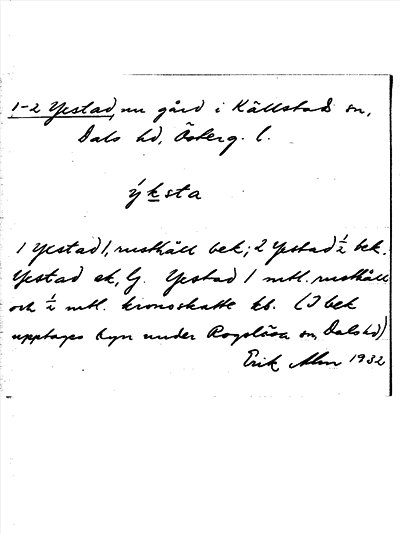 1-2 Yxstad, nu gård i Källstads sn,
Dals hd, Österg. l.
ýksta
1 Yxstad 1, rusthåll bek; 2 Yxstad ½ bek.
Yxstad ek, G. Yxstad 1 mtl. rusthåll
och ½ mtl. kronoskatte kb. (I bek
upptages byn under Rogslösa sn, Dals hd)
Erik Alm 1932